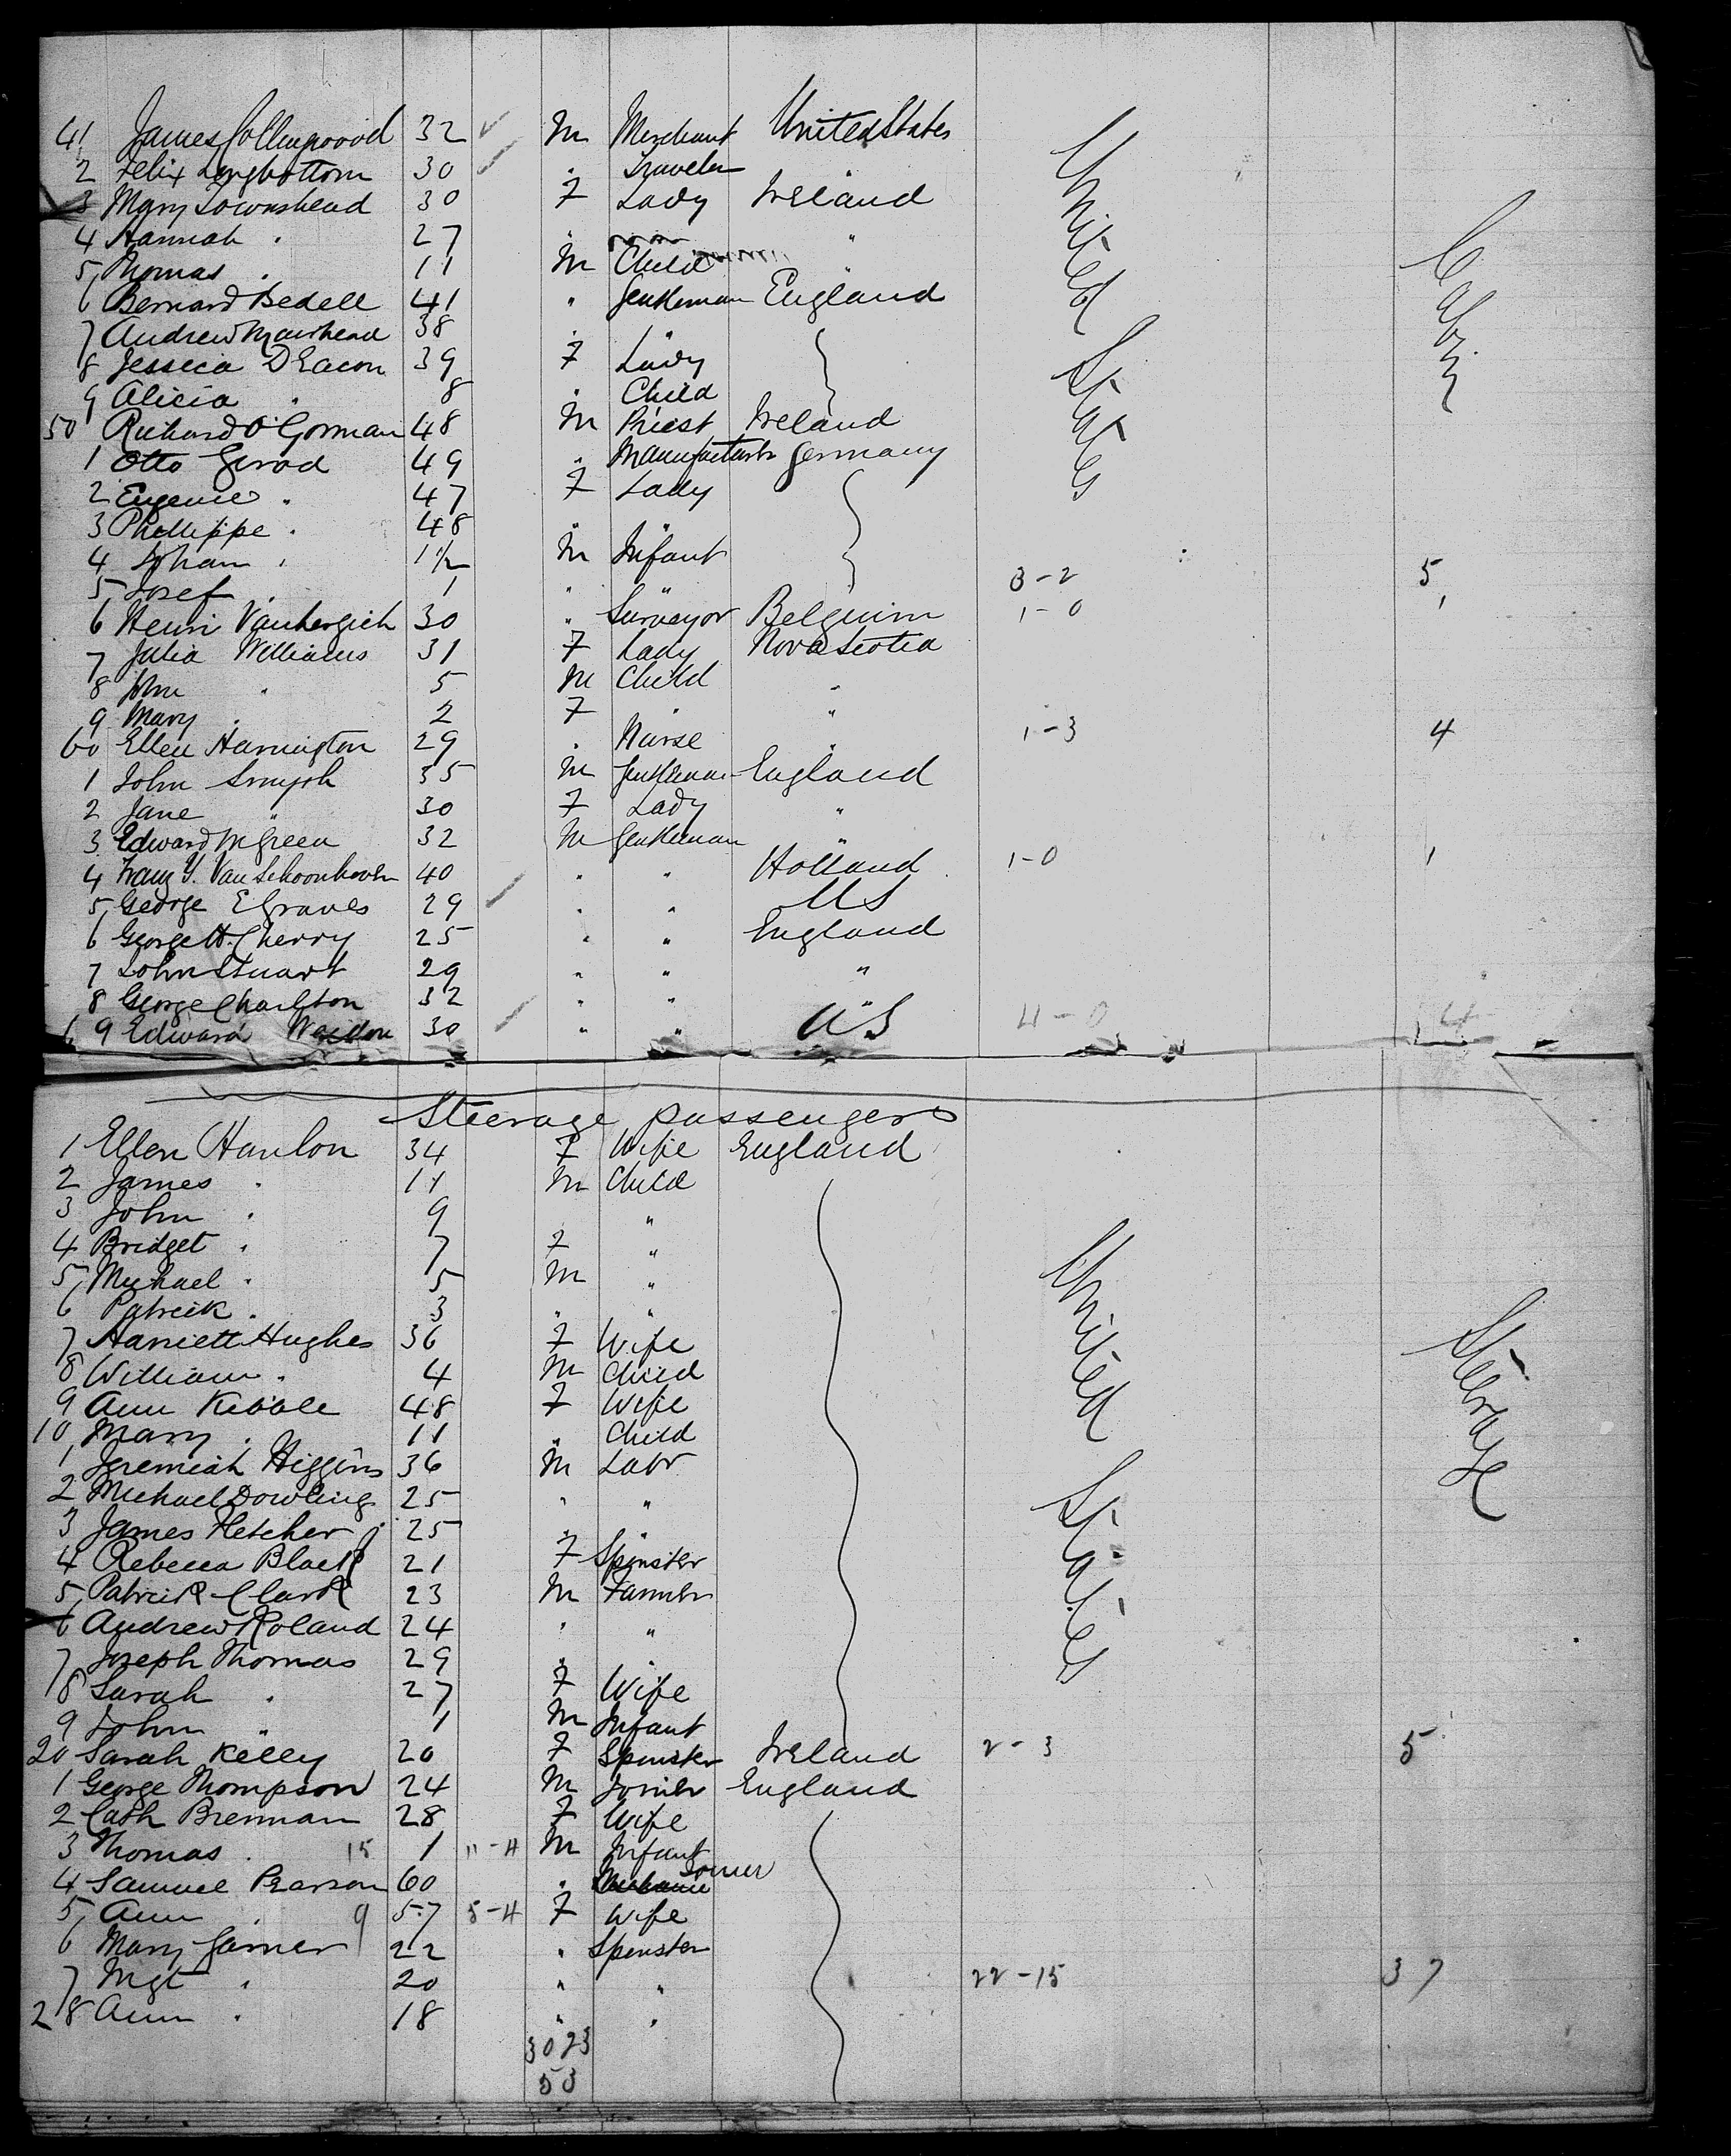 41 James Collingwood 32 M Merchant United States
2 Felix Longbottom 30 " Traveler
3 Mary Townshead 30 F Lady Ireland
4 Hannah " 27 " "
5 Thomas " 11 M Child "
6 Bernard Bedell 41 " Gentleman England
7 Andrew Muirhead 38 " "
8 Jessica DEacon 39 F Lady
9 Alicia " 8 " Child
50 Richard O'Gorman 48 M Priest Ireland
1 Otto Gerod 49 " Manufacturer Germany
2 Eugenie " 47 F Lady
3 Phillippe " 48 " "
4 Johan " 1 1/2 M Infant
5 Josef " 1 " " 3-2 5
6 Henri 30 " Surveyor Belguim 1-0 1
7 Julia Williams 31 F Lady Nova Scotia
8 John " 5 M Child "
9 Mary " 2 F " "
60 Ellen Harrington 29 " Nurse " 1-3 4
1 John Smyth 35 M Gentleman England
2 Jane " 30 F Lady "
3 Edward M Green 32 M Gentleman "
4 Franz Y. Van Schoonhoven 40 " " Holland 1-0 1
5 George E Graves 29 " " US
6 George H. Cherry 25 " " England
7 John Stuart 29 " " "
8 George Charlton 32 " " "
69 Edward 30 " " US 4-0 4
United States
Cabin
Steerage passengers
1 Ellen Hanlon 34 F Wife England
2 James " 11 M Child
3 John " 9 "
4 Bridget " 7 F "
5 Michael " 5 M "
6 Patrick " 3 " "
7 Harriett Hughes 36 F Wife
8 William " 4 M Child
9 Ann Kibble 48 F Wife
10 Mary " 11 " Child
1 Jeremiah Higgins 36 M Labr
2 Michael Dowling 25 " "
3 James Fletcher 25 " "
4 Rebecca Black 21 F Spinster
5 Patrick Clark 23 M Farmer
6 Andrew Roland 24 " "
7 Joseph Thomas 29 " "
18 Sarah " 27 F Wife
9 John " 1 M Infant
20 Sarah Kelly 20 F Spinster Ireland 2-3 5
1 George Thompson 24 M Joiner England
2 Cath Brennan 28 F Wife
3 Thomas " 15 1 11-4 M Infant
4 Samuel Pearson 60 " Joiner
5 Ann " 9 57 5-4 F Wife
6 Mary Garner 22 " Spinster
7 Mgt " 20 " " 22-15 37
28 Ann " 18 " "
30 23
53
United States
Steerage